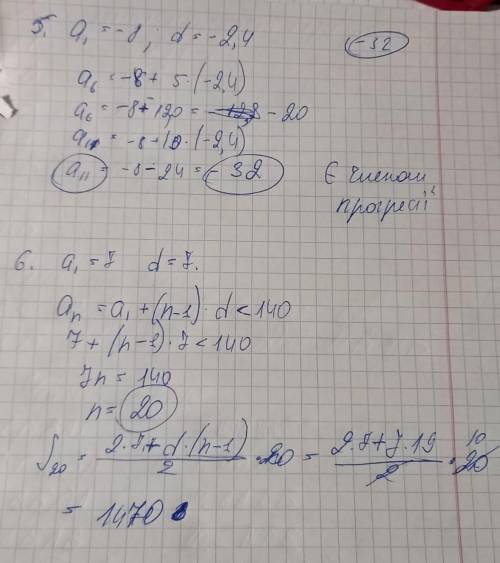 5. a₁ = -8 ; d = -2,4 -32
a₆ = -8 + 5 · (-2,4)
a₆ = -8 + 12,0 = -20
a₁₁ = -8 + 10 · (-2,4)
a₁₁ = -8 - 24 = -32 Є членом
прогресії
6. a₁ = 7 d = 7.
aₙ = a₁ + (n-1) · d < 140
7 + (n-1) · 7 < 140
7n = 140
n = 20
S₂₀ = (2·7 + d·(n-1))/2 · 20 = (2·7 + 7·19)/2 · 20 10
= 1470